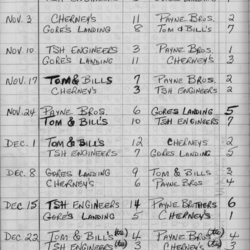 NOV. 3 CHERNEY'S 11 PAYNE BROS. 2
GORE'S LANDING 8 TOM & BILL'S 7
NOV. 10 TSH ENGINEERS 3 PAYNE BROS. 1
GORE'S LANDING 11 CHERNEY'S 3
NOV. 17 TOM & BILL'S 7 PAYNE BROS. 2
CHERNEY'S 3 TSH ENGINEERS 2
NOV. 24 PAYNE BROS. 6 GORES LANDING 5
TOM & BILL'S 10 TSH ENGINEERS 7
DEC. 1 TOM & BILL'S 12 CHERNEY'S 2
TSH ENGINEERS 7 GORES LANDING 5
DEC. 8 GORES LANDING 9 TOM & BILL'S 3
CHERNEY'S 6 PAYNE BROS. 4
DEC. 15 TSH ENGINEERS 14 PAYNE BROTHERS 6
GORES LANDING 5 CHERNEY'S 1
DEC. 22 TOM & BILL'S 4 PAYNE BROS. 4
TSH ENGINEERS 3 CHERNEY'S